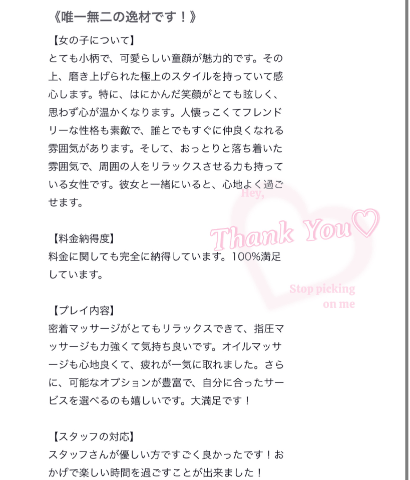 《唯一無二の逸材です！》
【女の子について】
とても小柄で、可愛らしい童顔が魅力的です。その
上、磨き上げられた極上のスタイルを持っていて感
心します。特に、はにかんだ笑顔がとても眩しく、
思わず心が温かくなります。人懐っこくてフレンド
リーな性格も素敵で、誰とでもすぐに仲良くなれる
雰囲気があります。そして、おっとりと落ち着いた
雰囲気で、周囲の人をリラックスさせる力も持って
いる女性です。彼女と一緒にいると、心地よく過ご
せます。
Hey,
Thank You♡
Stop picking
on me
【料金納得度】
料金に関しても完全に納得しています。100%満足
しています。
【プレイ内容】
密着マッサージがとてもリラックスできて、指圧マ
ッサージも力強くて気持ち良いです。オイルマッサ
ージも心地良くて、疲れが一気に取れました。さら
に、可能なオプションが豊富で、自分に合ったサー
ビスを選べるのも嬉しいです。大満足です！
【スタッフの対応】
スタッフさんが優しい方ですごく良かったです！お
かげで楽しい時間を過ごすことが出来ました！